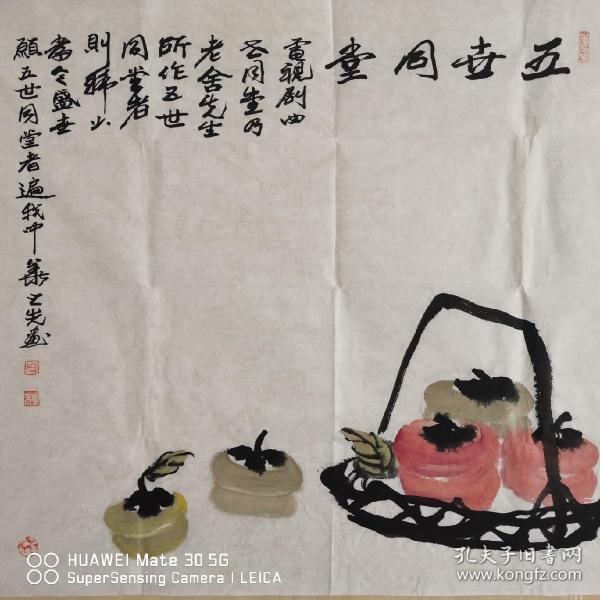 五世同堂
電視劇四
世同堂乃
老舍先生
所作五世
同堂者
則稀少
當今盛世
願五世同堂者遍我中華之先畫
HUAWEI Mate 30 5G
SuperSensing Camera | LEICA
孔夫子旧书网
www.kongfz.com